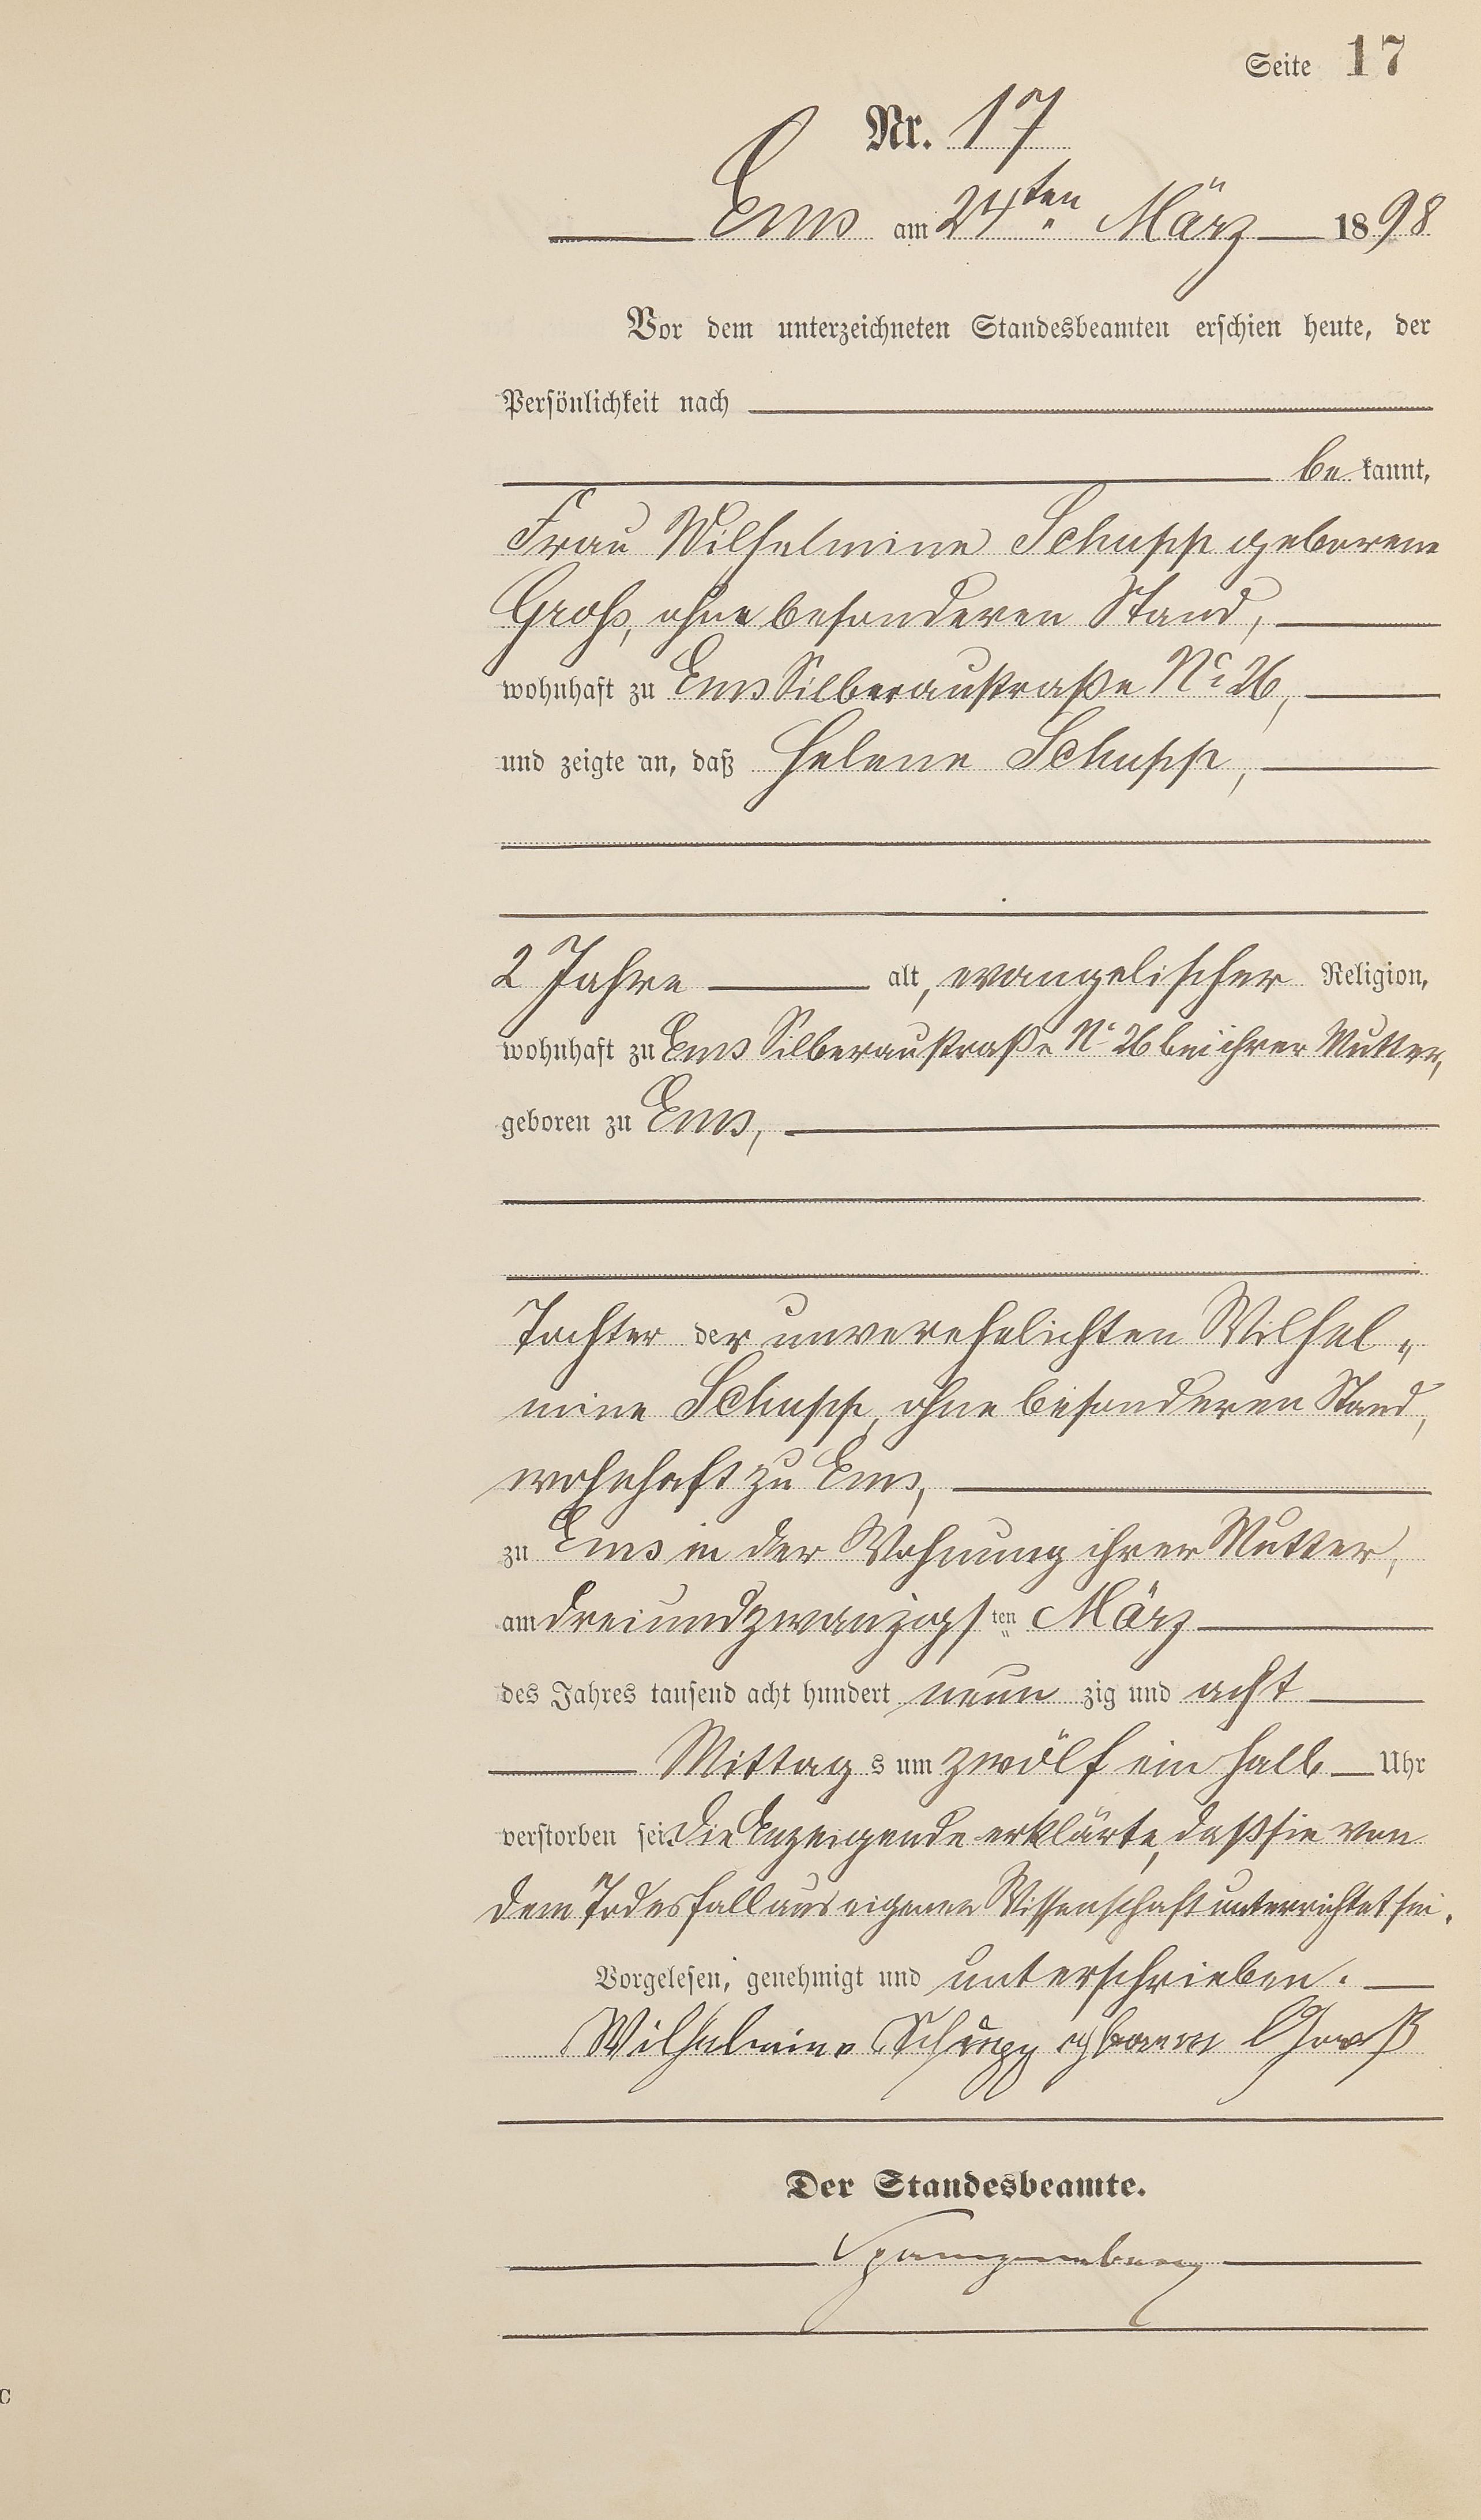 Seite 17
Nr. 17
Ems am 24ten März 1898
Vor dem unterzeichneten Standesbeamten erschien heute, der
Persönlichkeit nach
be kannt,
Frau Wilhelmine Schupp geborene
Groß, ohne besonderen Stand,
wohnhaft zu Ems Silberaustraße No 26,
und zeigte an, daß Helene Schupp,
2 Jahre alt, evangelischer Religion,
wohnhaft zu Ems Silberaustraße No 26 bei ihrer Mutter,
geboren zu Ems,
Tochter der unverehelichten Wilhel„
mine Schupp, ohne besonderen Stand,
wohnhaft zu Ems,
zu Ems in der Wohnung ihrer Mutter,
am dreiundzwanzigsten März
des Jahres tausend acht hundert neun zig und acht
Mittag s um zwölf ein halb Uhr
verstorben sei. Die Anzeigende erklärte, daß sie von
dem Todesfall aus eigener Wissenschaft unterrichtet sei.
Vorgelesen, genehmigt und unterschrieben.
Wilhelmine Schupp geborene Groß
Der Standesbeamte.
Spangenberg
C